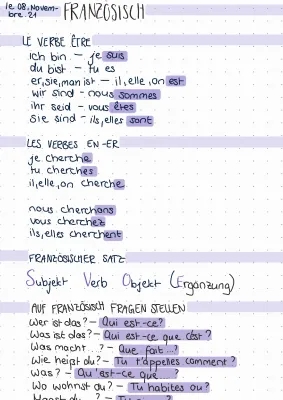 le 08. Novem-
bre. 21
FRANZÖSISCH
LE VERBE ÊTRE
ich bin — je suis
du bist — tu es
er, sie, man ist — il, elle, on est
wir sind - nous sommes
ihr seid - vous êtes
sie sind - ils, elles sont
LES VERBES EN -ER
je cherche
tu cherches
il, elle, on cherche
nous cherchons
vous cherchez
ils, elles cherchent
FRANZÖSISCHER SATZ
Subjekt Verb Objekt (Ergänzung)
AUF FRANZÖSISCH FRAGEN STELLEN
Wer ist das? — Qui est-ce?
Was ist das? — Qui est-ce que c'est?
Was macht ...? — Que fait ...?
Wie heißt du? — Tu t'appelles comment?
Was? — Qu'est-ce que ...?
Wo wohnst du? — Tu habites ou?